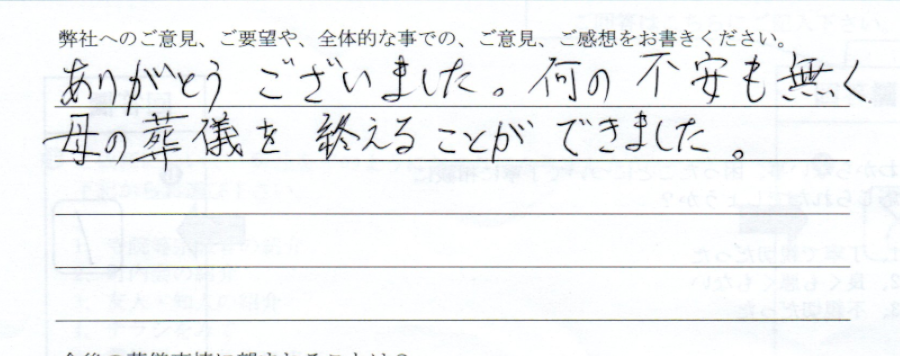 弊社へのご意見、ご要望や、全体的な事での、ご意見、ご感想をお書きください。
ありがとうございました。何の不安も無く
母の葬儀を終えることができました。